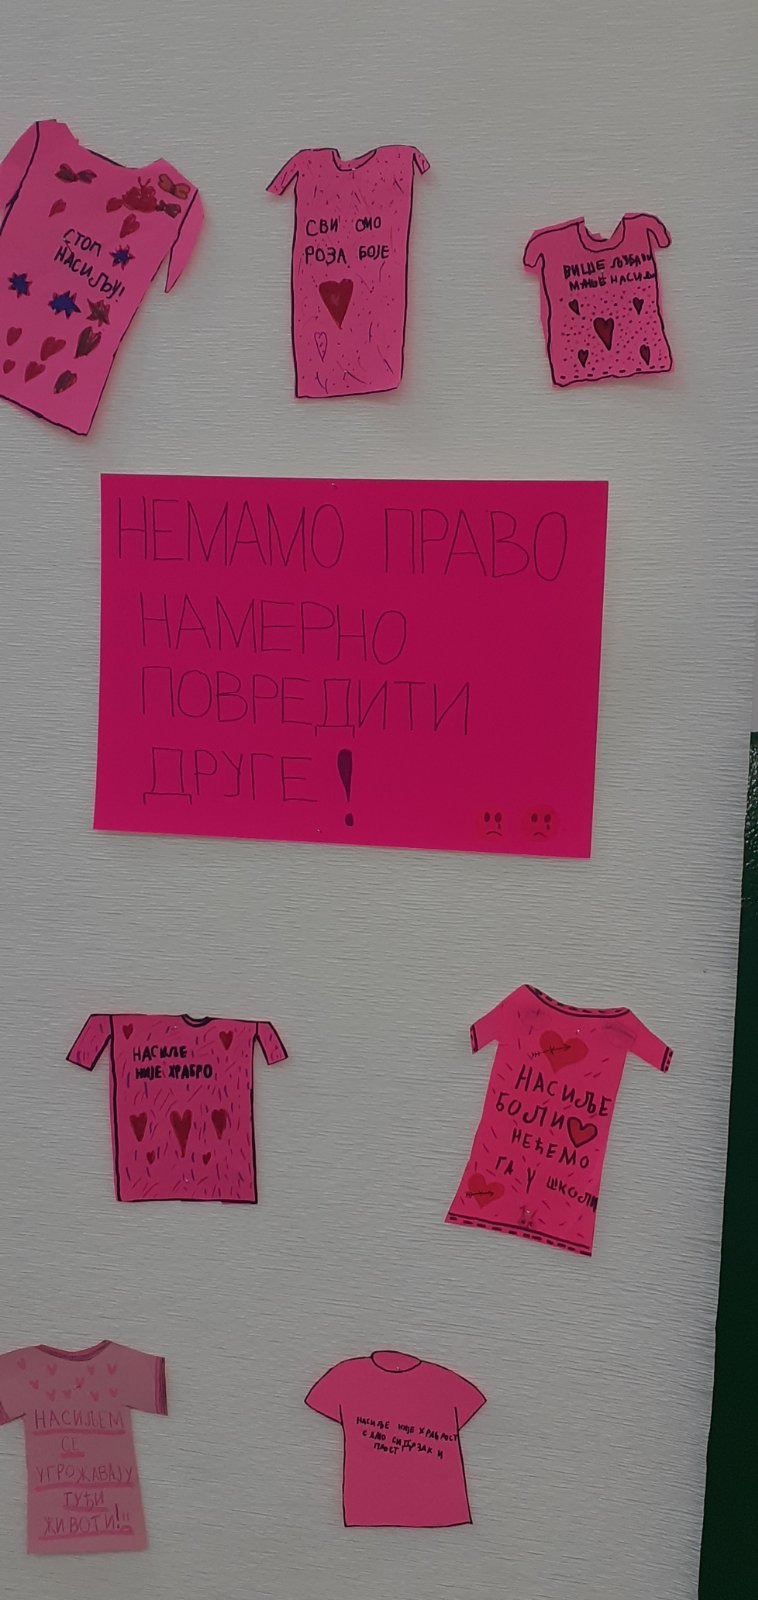 СТОП
НАСИЉУ!
СВИ СМО
РОЗА БОЈЕ
ВИШЕ ЉУБАВИ
МАЊЕ НАСИЉА
НЕМАМО ПРАВО
НАМЕРНО
ПОВРЕДИТИ
ДРУГЕ!
НАСИЉЕ
НИЈЕ ХРАБРО
НАСИЉЕ
БОЛИ
НЕЋЕМО
ГА У ШКОЛИ
НАСИЉЕМ
СЕ
УГРОЖАВАЈУ
ТУЂИ
ЖИВОТИ!
НАСИЉЕ НИЈЕ ХРАБРОСТ
САМО СИ ДРЗАК И
ПРОСТ